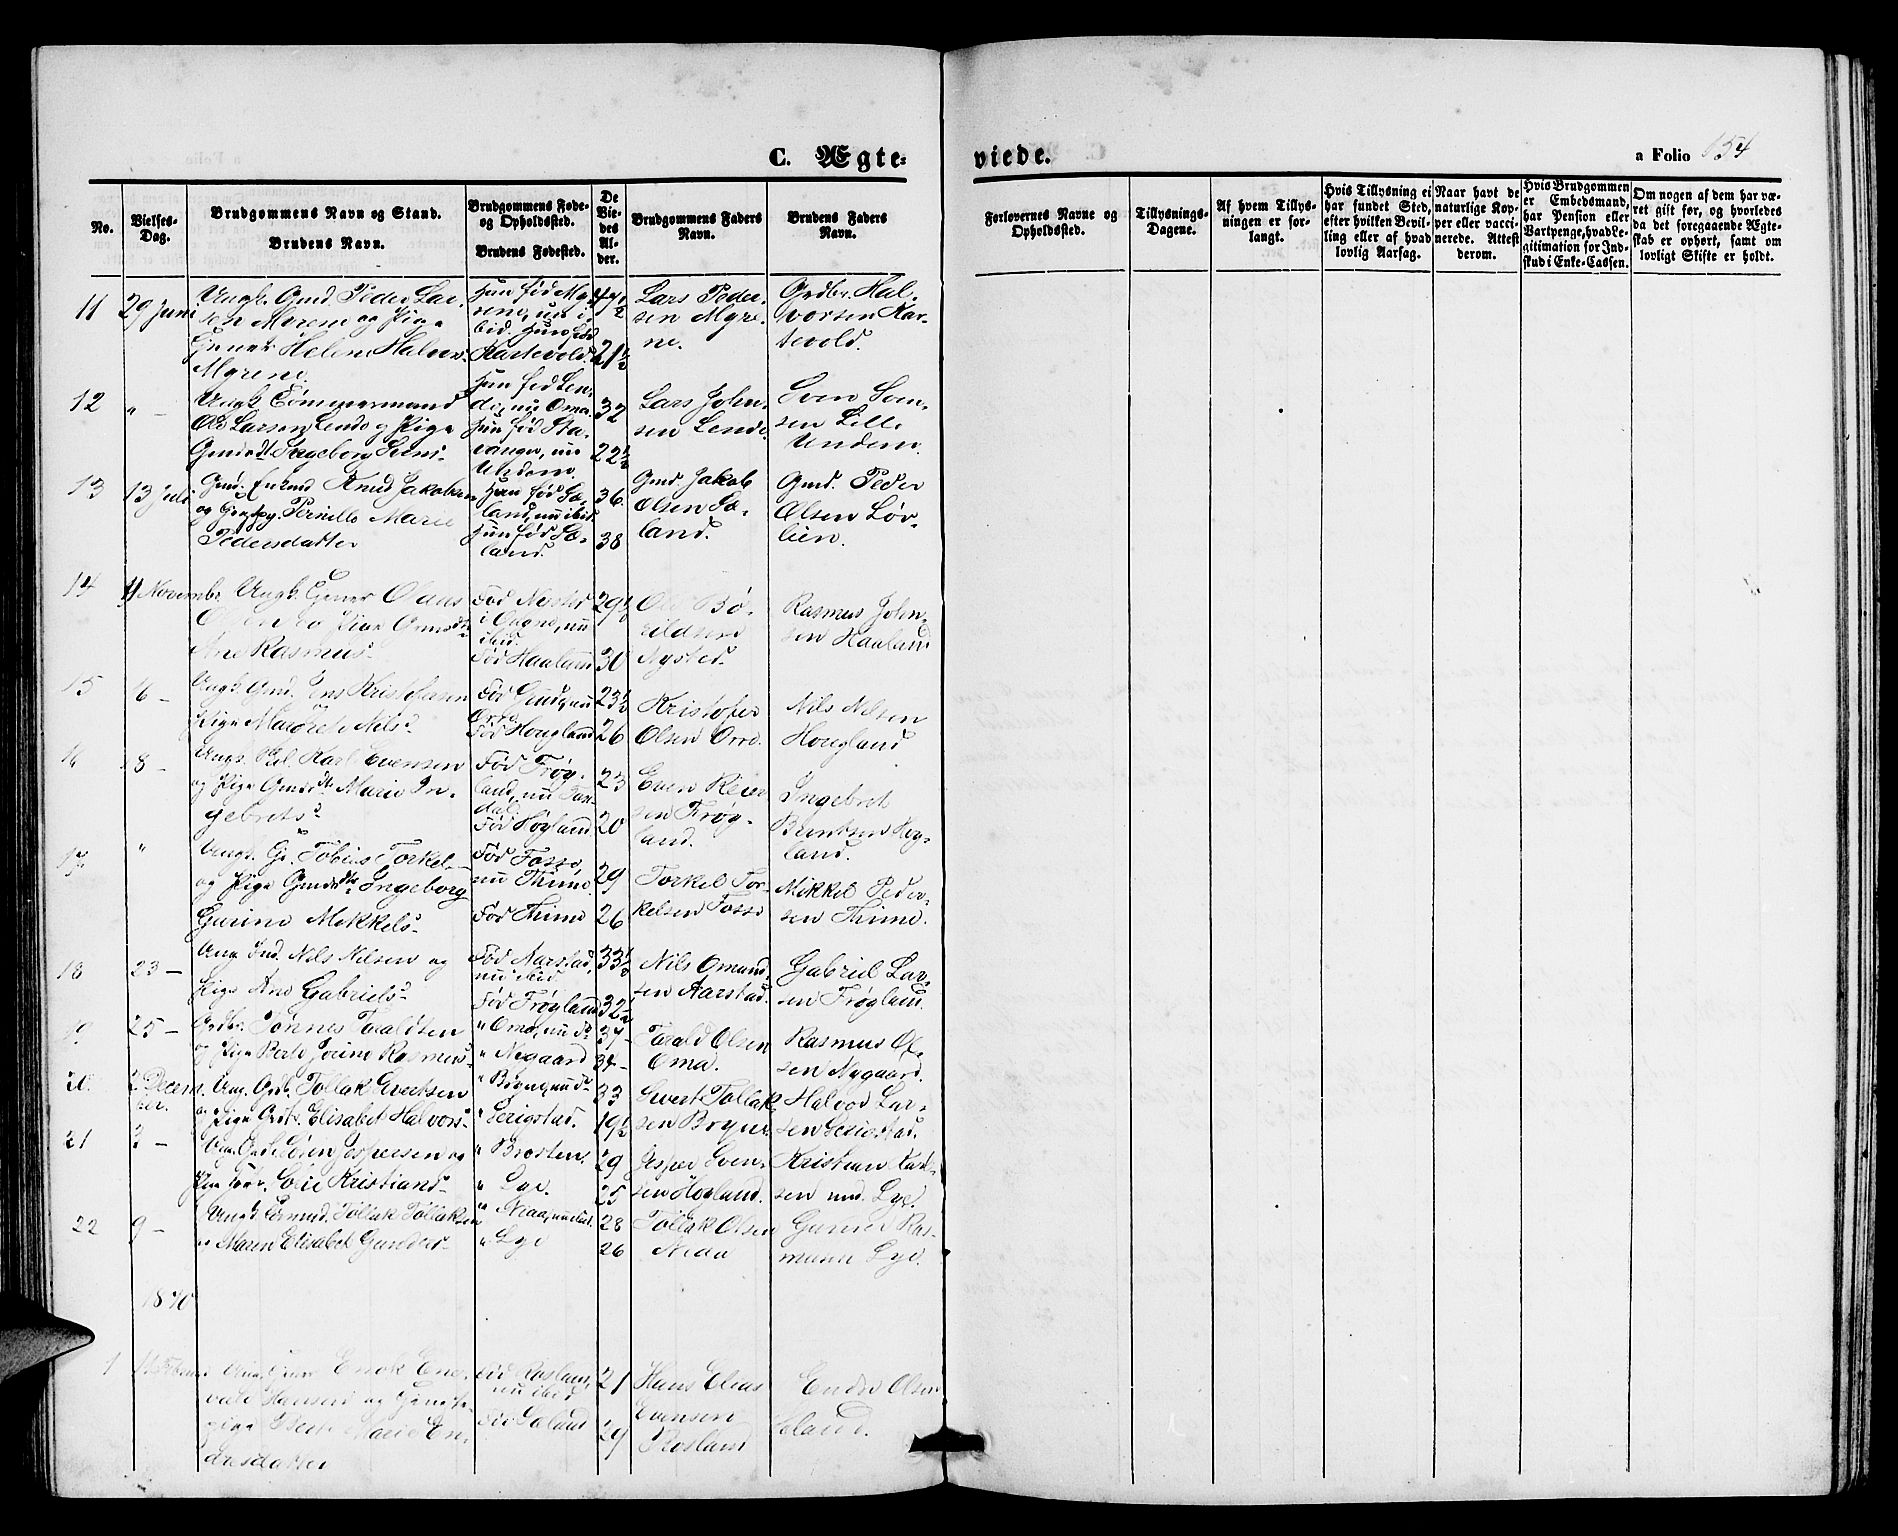 C. Ægte-
viede.
a Folio 154
No.
Vielses-
Dag.
Brudgommens Navn og Stand.
Brudens Navn.
Brudgommens Føde-
og Opholdssted.
Brudens Fødested.
De
Vie-
des
Al-
der.
Brudgommens Faders
Navn.
Brudens Faders
Navn.
Forlovernes Navne og
Opholdssted.
Tillysnings-
Dagene.
Af hvem Tillys-
ningen er for-
langt.
Hvis Tillysning ei
har fundet Sted,
efter hvilken Bevil-
ling eller af hvad
lovlig Aarsag.
Naar havt de
naturlige Kop-
per eller vacci-
nerede. Attest
derom.
Hvis Brudgommen
er Embedsmand,
har Pension eller
Vartpenge, hvad Le-
gitimation for Ind-
skud i Enke-Cassen.
Om nogen af dem har væ-
ret gift før, og hvorledes
da det foregaaende Ægte-
skab er ophørt, samt om
lovligt Skifte er holdt.
11
29 Juni
Ungk. Gmd. Peder Lar-
sen Myrene og Pige
Helene Halvors-
Myrene
Kartevold
21½
Lars Peder-
sen Myre-
ne.
Grdbr. Hal-
vorsen Kar-
tevold.
12
" -
Ungk. Tømmermand
Ole Larsen Lende og Pige
Gmdsdt Ingeborg Svens-
nu Oma.
Hun fød Sta-
vanger, nu
Undem
32
22½
Lars John-
sen Lende.
Sven Sven-
sen Lille
Undem.
13
13 Juli
Gmd. Enkemd Knud Jakobsen
og Pernille Marie
Pedersdatter
land, nu ibid.
Hun fød Sæ-
land.
36.
38
Gmd Jakob
Olsen Sæ-
land.
Gmd. Peder
Olsen Lør-
lien.
14
11 Novembr.
Ungk. Tjener Olaus
Olsen og Pige Gmdsdt
Ane Rasmus-
Fød Nysted
i Ogne, nu
ibid.
Fød Haaland
29½
30
Ole Bø-
eildsen
Nysted.
Rasmus John-
sen Haaland
15
6 -
Ungk. Gmd. Jens Kristofersen
og
Pige Margrete Nils-
Orre
Fød Hougland
23½
26
Kristofer
Olsen Orre.
Nils Nilsen
Hougland
16
18 -
Karl Evensen
og Pige Gmdsdt Marie In-
gebrets-
Fød Frøy-
land, nu
Fød Høyland
23
20
Even Reier
sen Frøy-
land.
Ingebret
Berntsen Høy-
land.
17
"
Ungk. Gr. Tobias Torkel-
og Pige Gmdsdtr Ingeborg
Gurine Mikkels-
Fød Fosse,
nu Thime.
Fød Thime
29
26
Torkel Tor-
kelsen Fosse
Mikkel Peder-
sen Thime.
18
23 -
Nils Nilsen og
Pige Ane Gabriels-
Fød Aarstad,
nu ibid
Fød Frøyland
33½
32½
Nils Omund-
sen Aarstad.
Gabriel Lar-
sen Frøyland.
19
25 -
Grdbr. Tønnes Taraldsen
og Pige Berte Jorine Rasmus-
" Oma, nu do
" Nygaard
37 -
34 -
Tarald Olsen
Oma.
Rasmus Ol-
sen Nygaard.
20.
2 Decem-
ber.
Ung. Grdb. Tollak Evertsen
og Pige Grdb. Elisabet Halvors-
" Serigstad.
33
19½
Evert Tollak-
sen Bryne
Halvor Lar-
sen Serigstad.
21
3 -
Søren Jespersen og
Pige Elie Kristians-
" Brosten.
" Lye.
29
25
Jesper Sven-
sen Høyland.
Kristian Karl-
sen Lye.
22
9 -
Ungk. Tollak Tollaksen
og Maren Elisabet Gunders-
" Lye
28
26
Tollak Olsen
Gunder Ras-
mussen Lye.
1870
1
Enok Ene-
vald Hansen og
Berte Marie En-
dresdatter
Fød Rosland,
nu ibid
Fød Sæland
21
29
Hans Elias
Evensen
Rosland
Endre Olsen
Sæland.